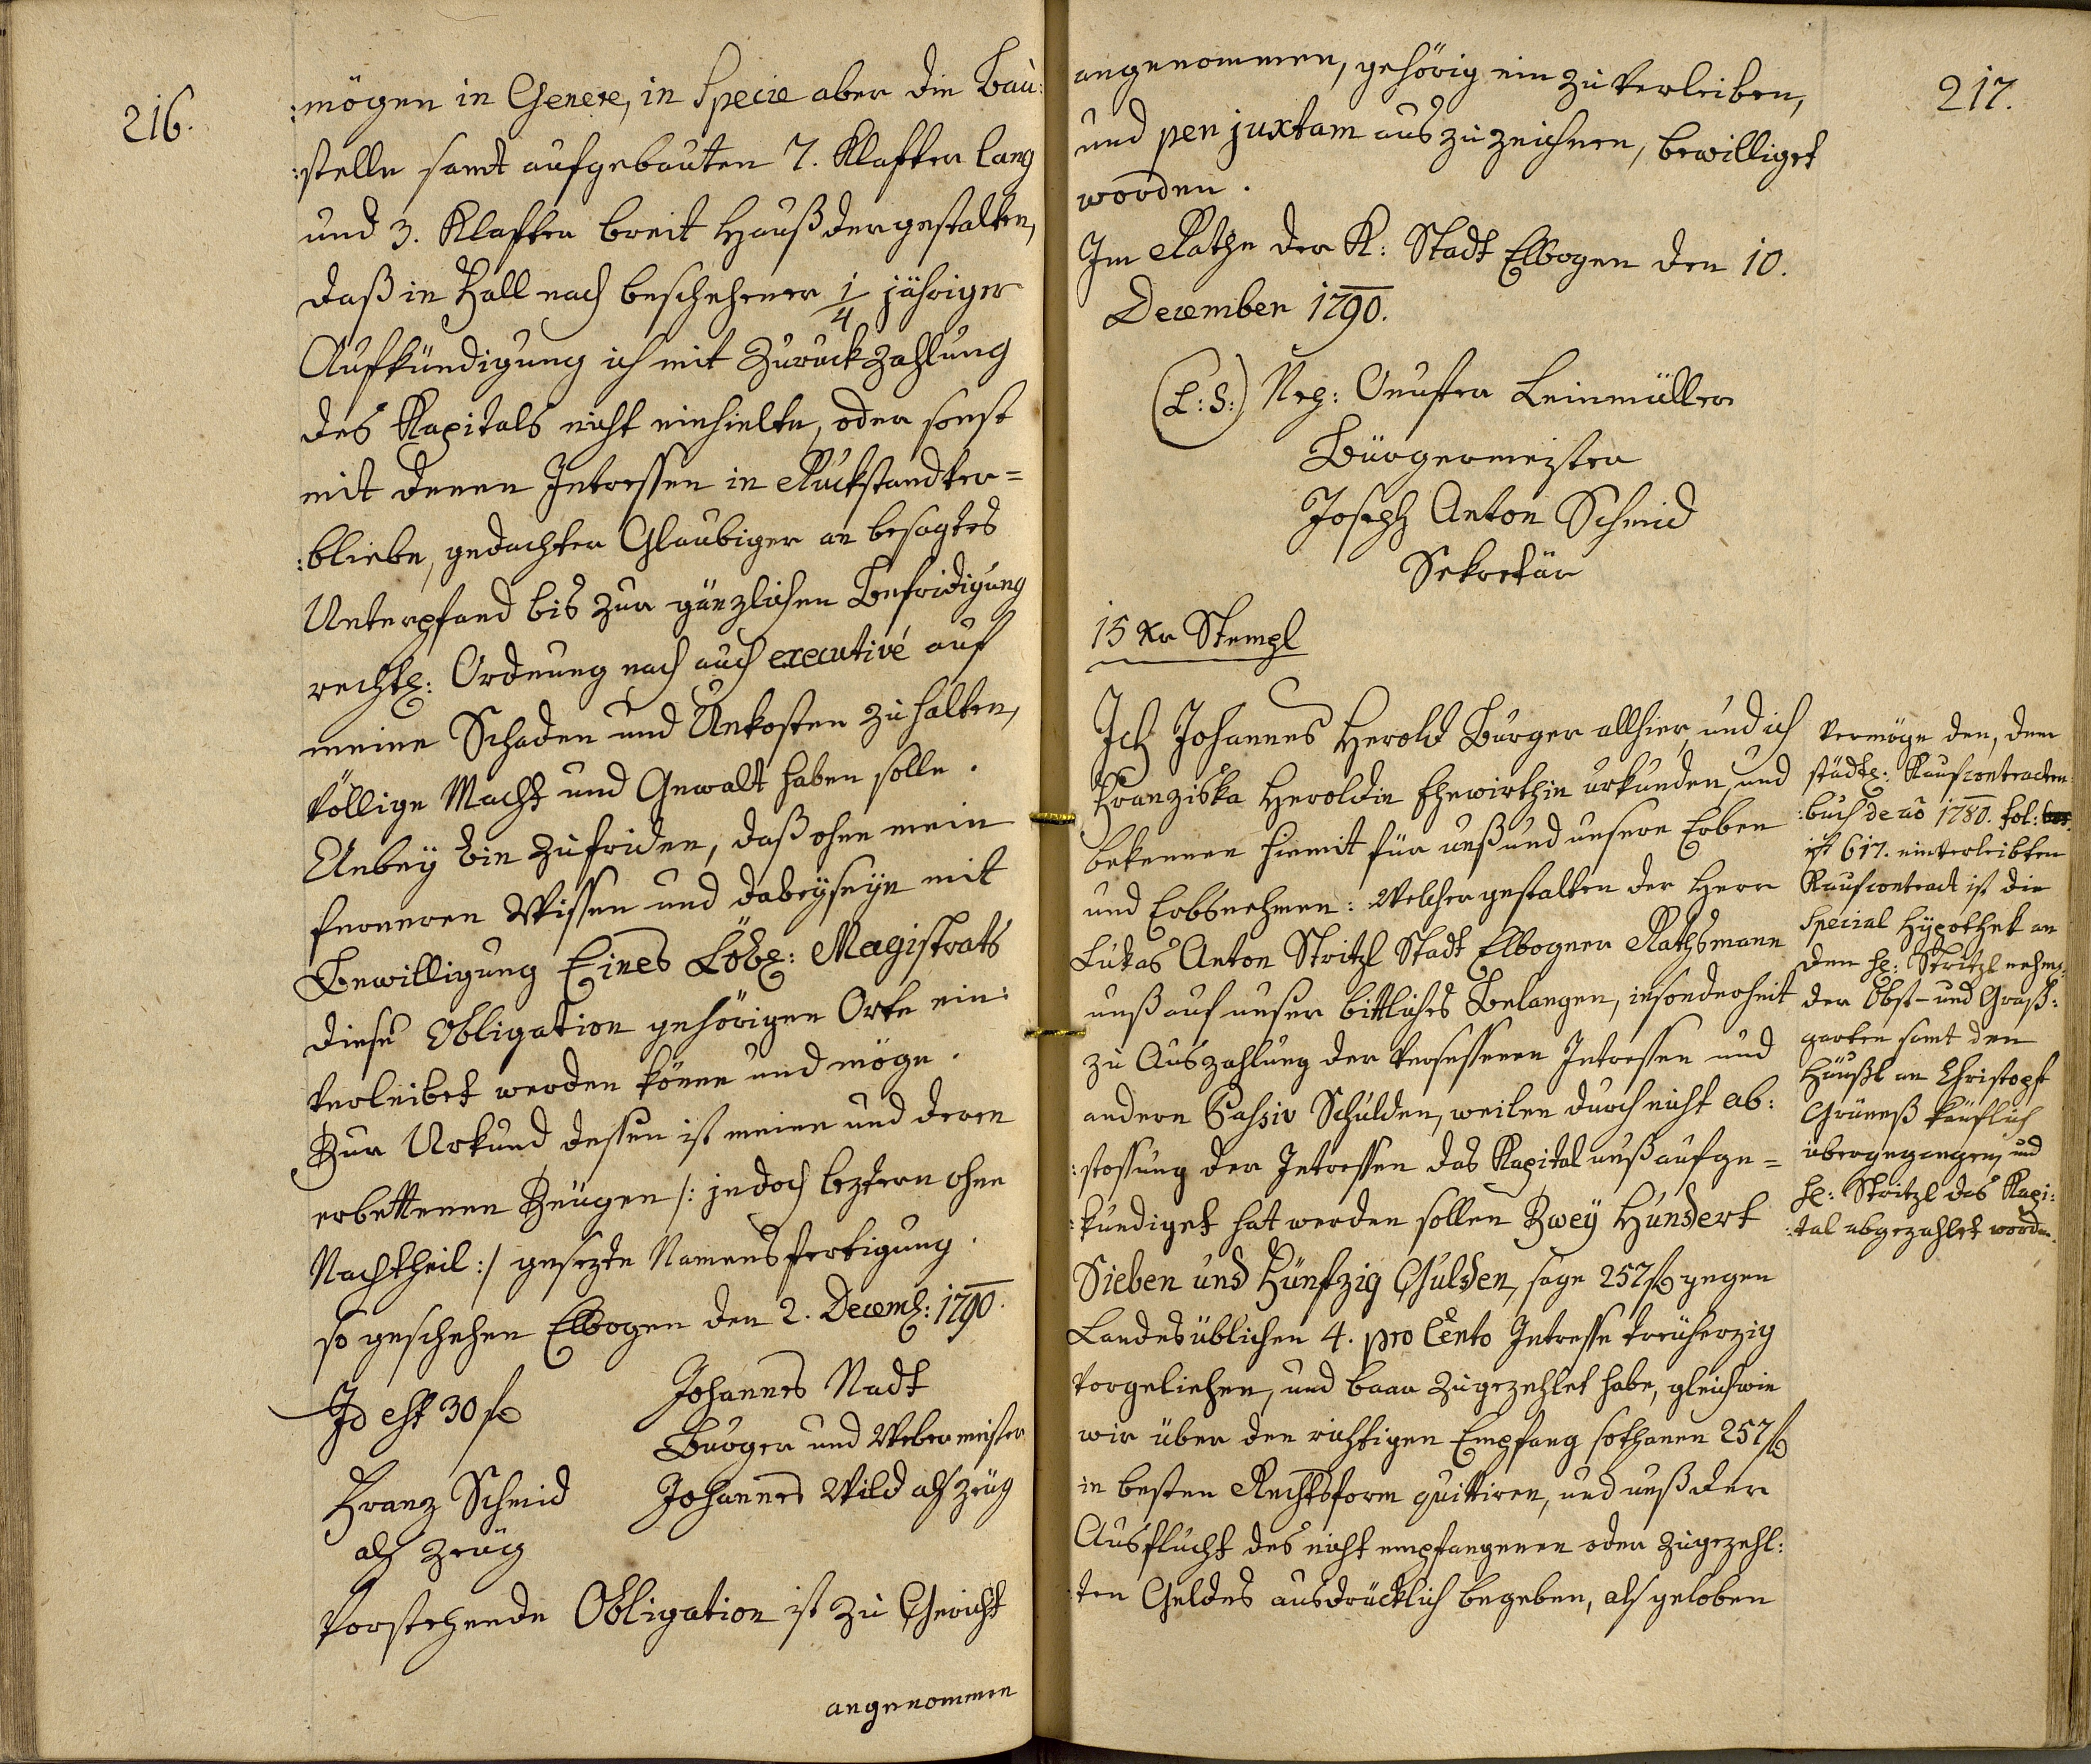 216.
:mögen in Genere, in Specie aber die Bau:
:stelle samt aufgebauten 7. Klafter lang
und 3. Klafter breit Hauß dergestalten,
daß in Fall nach beschehener 1/4 jähriger
Aufkündigung ich mit Zuruckzahlung
des Kapitals nicht einhielte, oder sonst
mit denen Intressen in Ruckstand ver=
:bliebe, gedachter Glaubiger an besagtes
Unterpfand bis zur gänzlichen Befridigung
rechtl: Ordnung nach auch executivé auf
meine Schaden und Unkosten zu halten,
völlige Macht und Gewalt haben solle.
Anbey bin zufriden, daß ohne mein
ferneren Wissen und dabeyseyn mit
Bewilligung Eines Löbl: Magistrats
diese Obligation gehörigen Orte ein:
verleibet werden könne und möge.
Zur Urkund dessen ist meine und deren
erbettenen Zeugen /: jedoch leztern ohne
Nachtheil :/ gesezte Namensfertigung.
so geschehen Elbogen den 2. Decemb: 1790.
Id est 30 f
Johannes Nadt
Burger und Webermeister
Franz Schmid
als Zeug
Johannes Wild als Zeug
Vorstehende Obligation ist zu Gericht
angenommen
217.
angenommen, gehörig ein zu verleiben,
und per juxtam auszuzeichnen, bewilliget
worden.
Im Rathe der K: Stadt Elbogen den 10.
December 1790.
(L:S:) Leinmüller
Bürgermeister
Joseph Anton Schmid
Sekretär
15 Xr Stempl
Ich Johannes Herold Burger allhier, und ich
Franziska Heroldin Ehewirthin urkunden, und
bekennen hiemit für unß und unsere Erben
und Erbsnehmen: Welchergestalten der Herr
Lukas Anton Stritzl Stadt Elbogner Rathsmann
unß auf unser bittliches Belangen, insonderheit
zu Auszahlung der versessenen Intressen und
andern Passiv Schulden, weilen durch nicht ab:
:stossung der Intressen das Kapital unß aufge=
:kündiget hat werden sollen Zwey Hundert
Sieben und Fünfzig Gulden, sage 257 f gegen
Landesüblichen 4. pro Cento Intresse treuherzig
vorgeliehen, und baar zugezehlet habe, gleichwie
wir über den richtigen Empfang sothanen 257 f
in besten Rechtsform quittiren, und unß der
Ausflucht des nicht empfangenen oder zugezehl:
:ten Geldes ausdrücklich begeben, als geloben
Vermöge den, dem
städtl: Kaufcontracten
:buch de ao 1780. fol:
617. einverleibten
Kaufcontract ist die
Special Hypothek an
den H: Stritzl
der Obst- und Graß:
garten samt den
Häußl an Christoph
Grüneß käuflich
übergegangen, und
H: Stritzl das Kapi:
:tal abgezahlet worden.